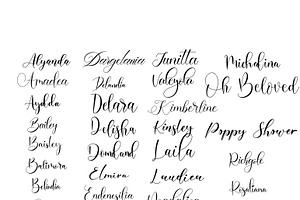 Alyanda
Amadea
Aydda
Bailey
Baisley
Balimora
Belindia
Dargelania
Delandia
Delara
Delisha
Domland
Elmira
Endenesilia
Junitta
Valeyola
Kimberline
Kinsley
Laila
Laudien
Michalina
Oh Beloved
Poppy Shower
Richgole
Rosaliana